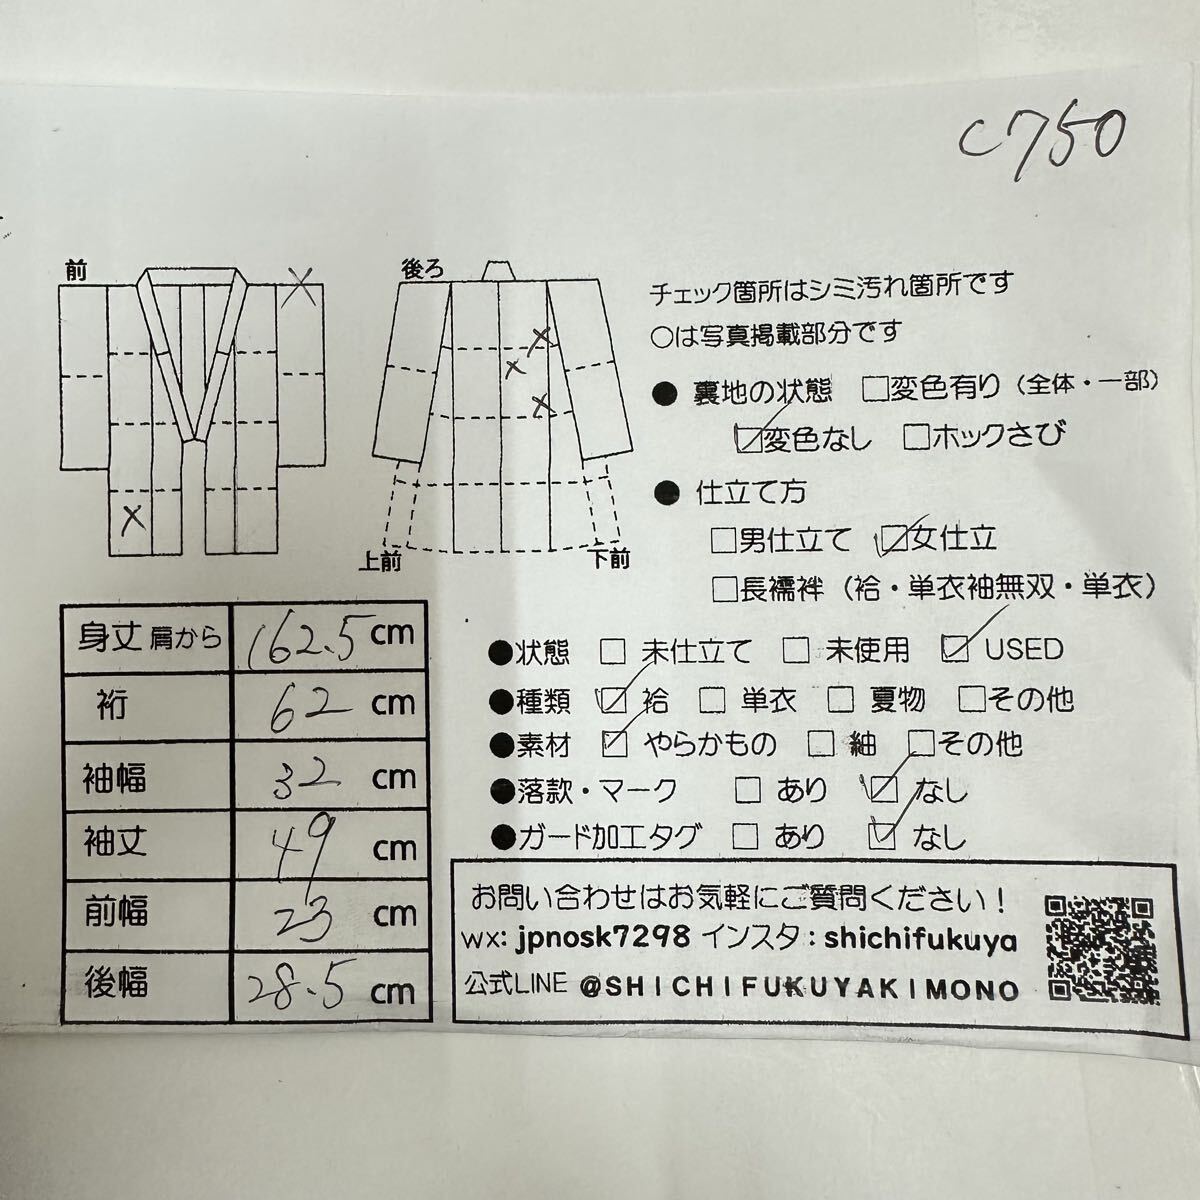 C750
前
後ろ
上前
下前
チェック箇所はシミ汚れ箇所です
○は写真掲載部分です
● 裏地の状態 □変色有り（全体・一部）
☑変色なし □ホックさび
● 仕立て方
□男仕立て ☑女仕立
□長襦袢（袷・単衣袖無双・単衣）
●状態 □ 未仕立て □ 未使用 ☑ USED
●種類 ☑ 袷 □ 単衣 □ 夏物 □その他
●素材 ☑ やらかもの □ 紬 □その他
●落款・マーク □ あり ☑ なし
●ガード加工タグ □ あり ☑ なし
身丈 肩から 162.5 cm
裄 62 cm
袖幅 32 cm
袖丈 49 cm
前幅 23 cm
後幅 28.5 cm
お問い合わせはお気軽にご質問ください！
wx: jpnosk7298 インスタ : shichifukuya
公式LINE @SHICHIFUKUYAKIMONO